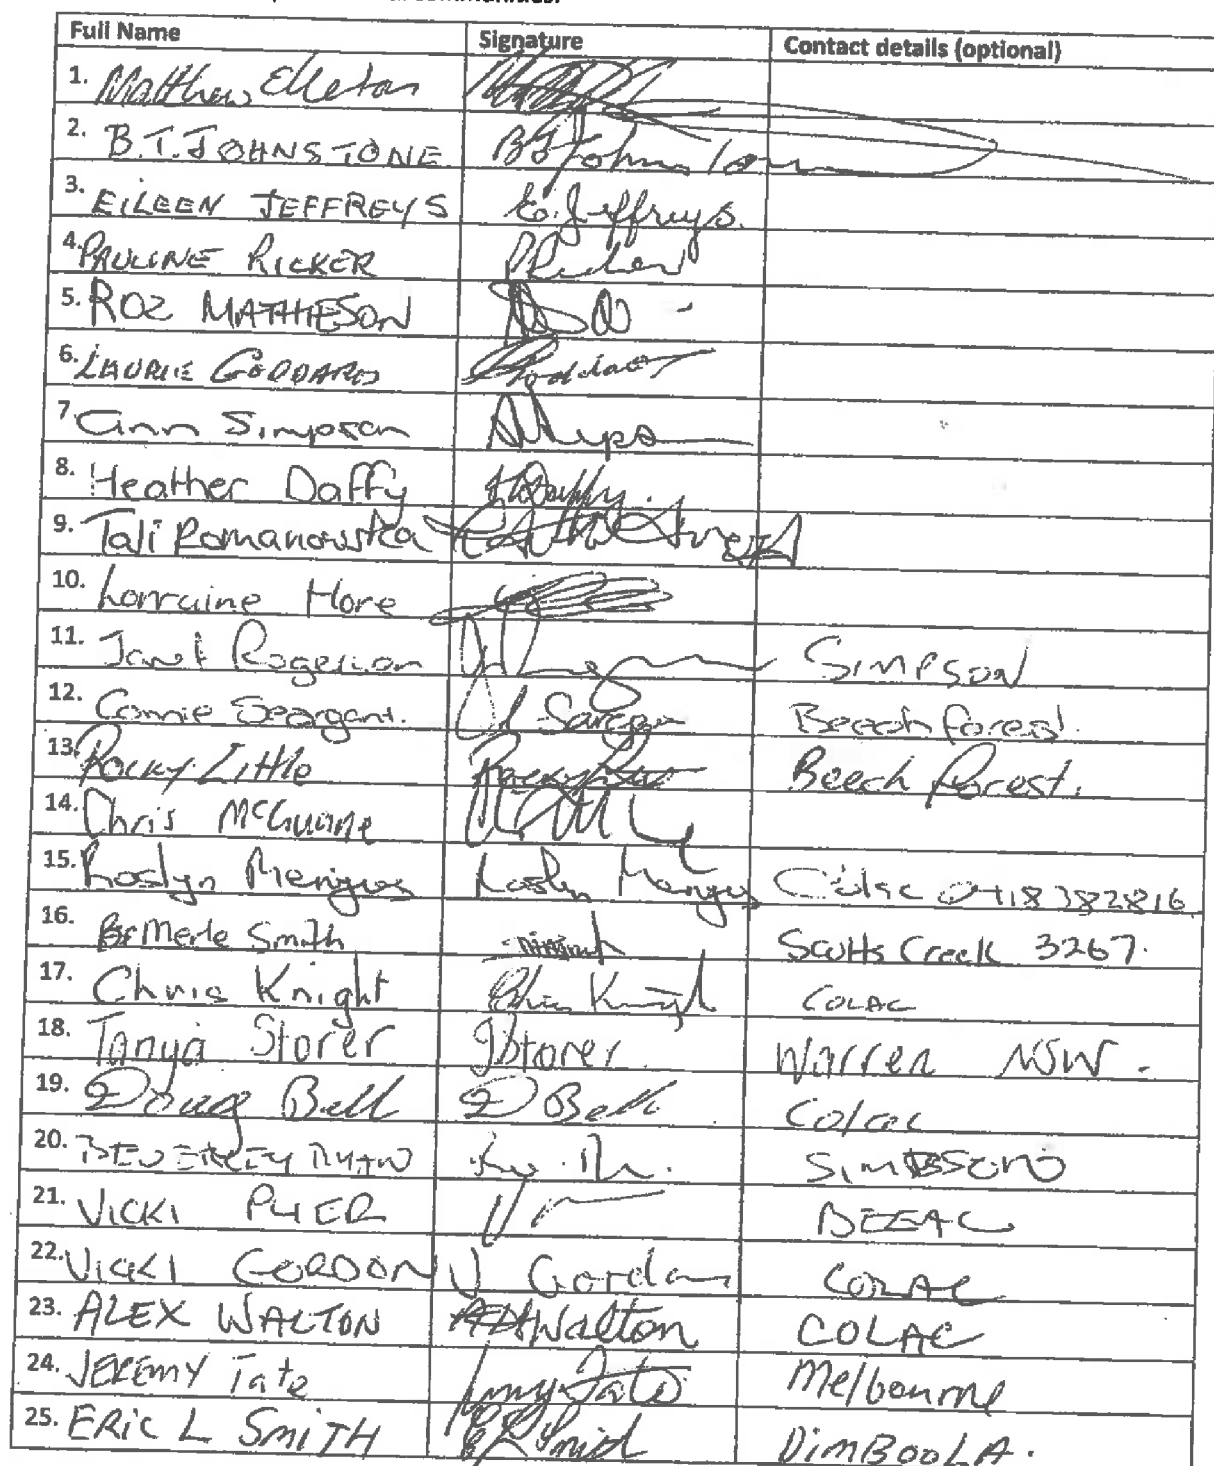 Full Name Signature Contact details (optional)
1. Matthew
2. B.T. JOHNSTONE B J Johnstone
3. EILEEN JEFFREYS E. Jeffreys.
4. PAULINE RICKER P Ricker
5. ROZ MATHIESON
6. LAURIE GODDARD Goddard
7. Ann Simpson
8. Heather Daffy H Daffy.
9. Tali Romanowska
10. Lorraine Hore
11. Janet Rogerson SIMPSON
12. Connie Seargant. Beech forest.
13. Rocky Little Beech Forest.
14. Chris McGuane
15. Roslyn Mengus Roslyn Mengus Colac 0418382816
16. Merle Smith Scotts Creek 3267.
17. Chris Knight Chris Knight COLAC
18. Tanya Storer Storer Warren NSW.
19. Doug Bell D Bell Colac
20. BEVERLEY RYAN
21. VICKI BEEAC
22. VICKI GORDON V Gordon COLAC
23. ALEX WALTON Walton COLAC
24. JEREMY Tate Jeremy Tate Melbourne
25. ERIC L SMITH Smith DIMBOOLA.